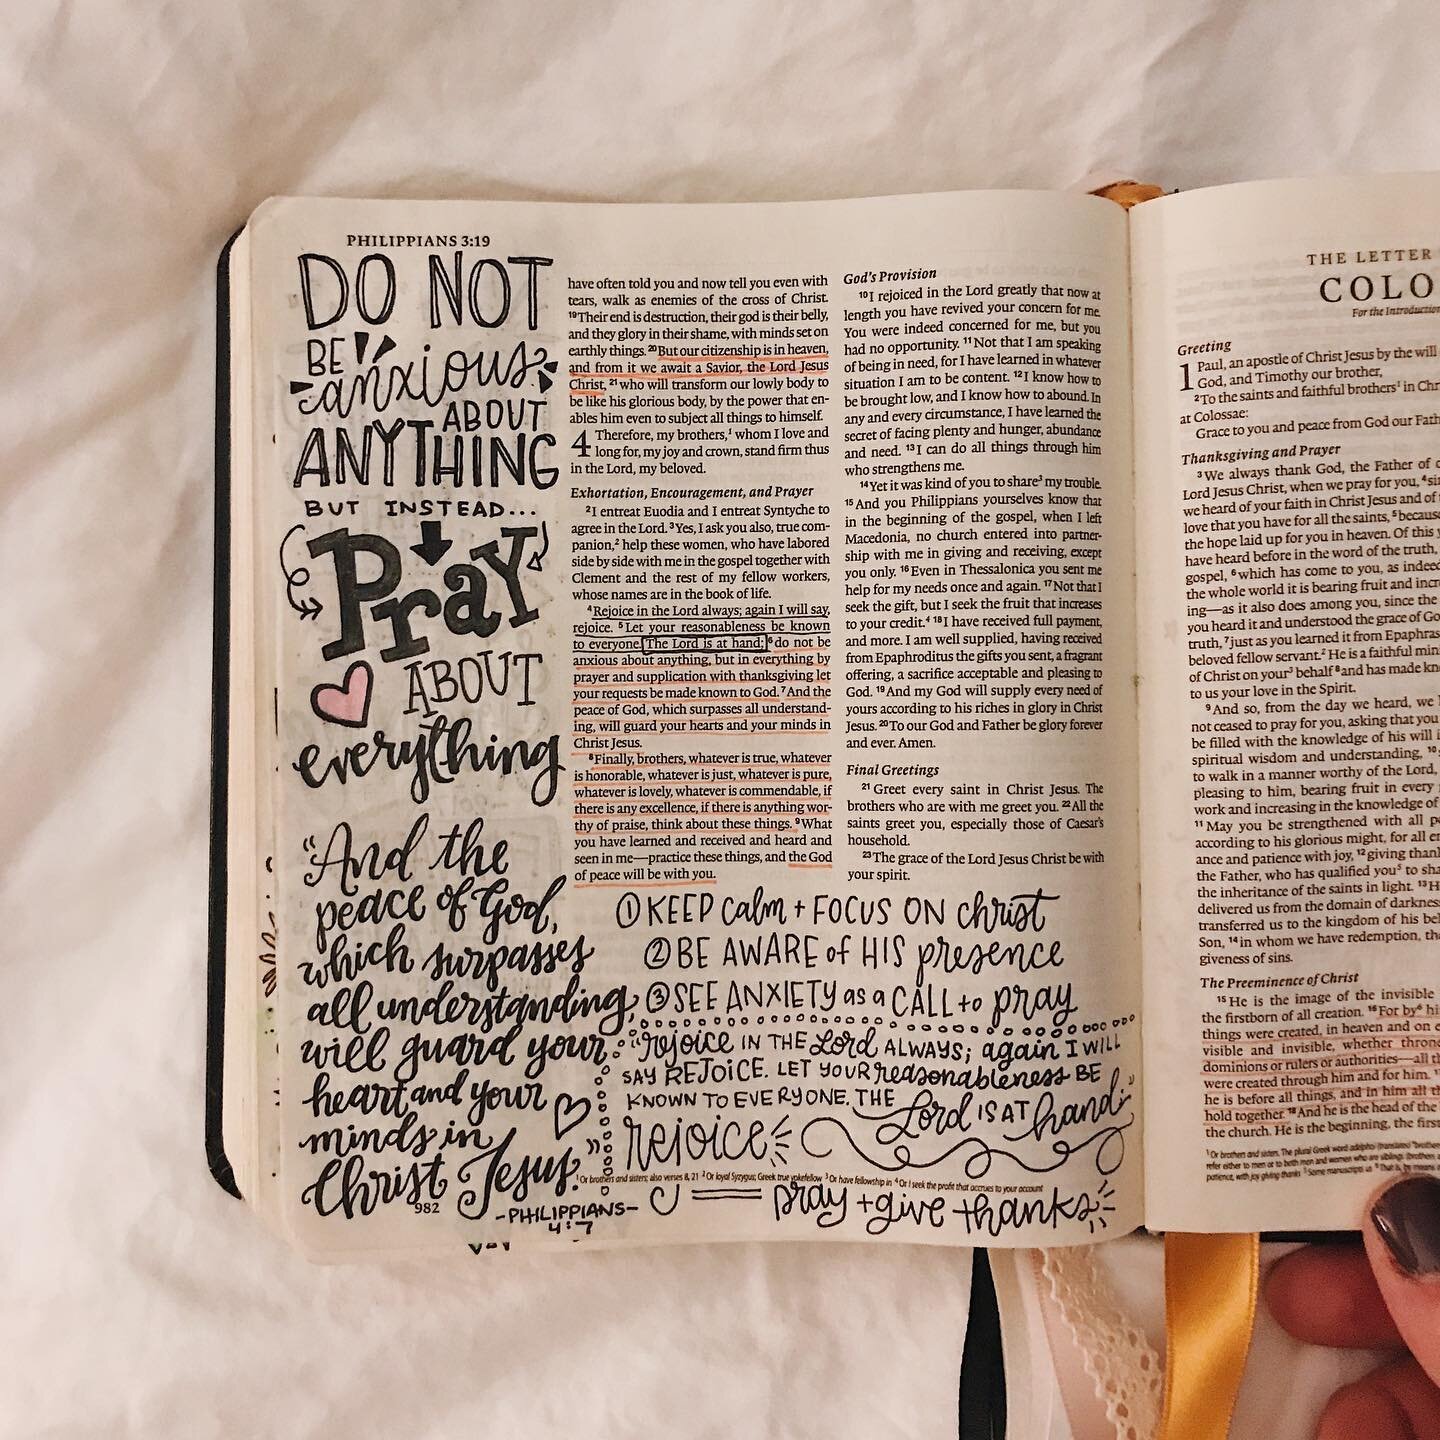 PHILIPPIANS 3:19
DO NOT
BE
anxious
ABOUT
ANYTHING
BUT INSTEAD...
Pray
ABOUT
everything
"And the
peace of God,
which surpasses
all understanding,
will guard your
heart and your
minds in
Christ Jesus."
982
-PHILIPPIANS-
4:7
have often told you and now tell you even with
tears, walk as enemies of the cross of Christ.
19Their end is destruction, their god is their belly,
and they glory in their shame, with minds set on
earthly things. 20But our citizenship is in heaven,
and from it we await a Savior, the Lord Jesus
Christ, 21 who will transform our lowly body to
be like his glorious body, by the power that en-
ables him even to subject all things to himself.
4 Therefore, my brothers,1 whom I love and
long for, my joy and crown, stand firm thus
in the Lord, my beloved.
Exhortation, Encouragement, and Prayer
2I entreat Euodia and I entreat Syntyche to
agree in the Lord. 3Yes, I ask you also, true com-
panion,2 help these women, who have labored
side by side with me in the gospel together with
Clement and the rest of my fellow workers,
whose names are in the book of life.
4Rejoice in the Lord always; again I will say,
rejoice. 5Let your reasonableness be known
to everyone. The Lord is at hand; 6do not be
anxious about anything, but in everything by
prayer and supplication with thanksgiving let
your requests be made known to God. 7And the
peace of God, which surpasses all understand-
ing, will guard your hearts and your minds in
Christ Jesus.
8Finally, brothers, whatever is true, whatever
is honorable, whatever is just, whatever is pure,
whatever is lovely, whatever is commendable, if
there is any excellence, if there is anything wor-
thy of praise, think about these things. 9What
you have learned and received and heard and
seen in me—practice these things, and the God
of peace will be with you.
God's Provision
10I rejoiced in the Lord greatly that now at
length you have revived your concern for me.
You were indeed concerned for me, but you
had no opportunity. 11Not that I am speaking
of being in need, for I have learned in whatever
situation I am to be content. 12I know how to
be brought low, and I know how to abound. In
any and every circumstance, I have learned the
secret of facing plenty and hunger, abundance
and need. 13I can do all things through him
who strengthens me.
14Yet it was kind of you to share3 my trouble.
15And you Philippians yourselves know that
in the beginning of the gospel, when I left
Macedonia, no church entered into partner-
ship with me in giving and receiving, except
you only. 16Even in Thessalonica you sent me
help for my needs once and again. 17Not that I
seek the gift, but I seek the fruit that increases
to your credit.4 18I have received full payment,
and more. I am well supplied, having received
from Epaphroditus the gifts you sent, a fragrant
offering, a sacrifice acceptable and pleasing to
God. 19And my God will supply every need of
yours according to his riches in glory in Christ
Jesus. 20To our God and Father be glory forever
and ever. Amen.
Final Greetings
21Greet every saint in Christ Jesus. The
brothers who are with me greet you. 22All the
saints greet you, especially those of Caesar's
household.
23The grace of the Lord Jesus Christ be with
your spirit.
① KEEP calm + FOCUS ON christ
② BE AWARE of HIS presence
③ SEE ANXIETY as a CALL to pray
"rejoice IN THE Lord ALWAYS; again I WILL
SAY REJOICE. LET YOUR reasonableness BE
KNOWN TO EVERYONE. THE Lord IS AT hand."
rejoice
1 Or brothers and sisters; also verses 8, 21 2 Or loyal Syzygus; Greek true yokefellow 3 Or have fellowship in 4 Or I seek the profit that accrues to your account
= pray + give thanks
THE LETTER
COLO
For the Introduction
Greeting
1 Paul, an apostle of Christ Jesus by the will
God, and Timothy our brother,
2To the saints and faithful brothers1 in Chr
at Colossae:
Grace to you and peace from God our Fath
Thanksgiving and Prayer
3We always thank God, the Father of o
Lord Jesus Christ, when we pray for you, 4sin
we heard of your faith in Christ Jesus and of
love that you have for all the saints, 5because
the hope laid up for you in heaven. Of this y
have heard before in the word of the truth,
gospel, 6which has come to you, as indeed
the whole world it is bearing fruit and incr
ing—as it also does among you, since the
you heard it and understood the grace of Go
truth, 7just as you learned it from Epaphras
beloved fellow servant.2 He is a faithful min
of Christ on your3 behalf 8and has made kn
to us your love in the Spirit.
9And so, from the day we heard, we h
not ceased to pray for you, asking that you
be filled with the knowledge of his will i
spiritual wisdom and understanding, 10
to walk in a manner worthy of the Lord,
pleasing to him, bearing fruit in every
work and increasing in the knowledge of
11May you be strengthened with all po
according to his glorious might, for all en
ance and patience with joy, 12giving thank
the Father, who has qualified you5 to sha
the inheritance of the saints in light. 13H
delivered us from the domain of darkness
transferred us to the kingdom of his bel
Son, 14in whom we have redemption, the
giveness of sins.
The Preeminence of Christ
15He is the image of the invisible
the firstborn of all creation. 16For by6 hi
things were created, in heaven and on e
visible and invisible, whether throne
dominions or rulers or authorities—all th
were created through him and for him.
he is before all things, and in him all th
hold together. 18And he is the head of the
the church. He is the beginning, the first